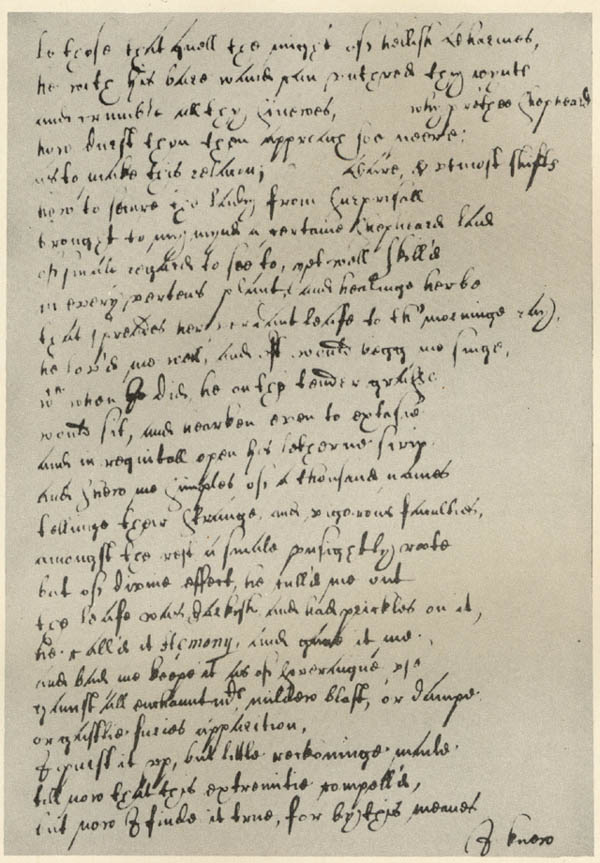 to those that quell the might of hellish charmes,
he with his bare wand can unthred thy joynts
and crumble all thy sinewes, why prethee shepheard
how durst thou then approach soe neere
as to make this relation; Care, & utmost shifts
how to secure the Lady from surprisall
brought to my mynd a certaine shepheard lad
of small regard to see to, yet well skill'd
in every vertues plant, and healinge herbe
that spreades her verdant leafe to th' morninge ray,
he lov'd me well, and oft would begg me singe,
wch when I did, he on the tender grasse
would sit, and hearken even to extasie
and in requitall open his letherne scrip
and shew me simples of a thousand names
tellinge their strange, and vigorous faculties,
amongst the rest a smale unsightly roote
but of divine effect, he cull'd me out
the leafe was darkish and had prickles on it,
he call'd it Hemony, and gave it me
and bad me keepe it as of soveraigne use
gainst all enchauntmts, mildew blast, or dampe
or gastlie furies apparition,
I purst it up, but little reckoninge made
till now that this extremitie compell'd,
but now I finde it true, for by this meanes
I knew